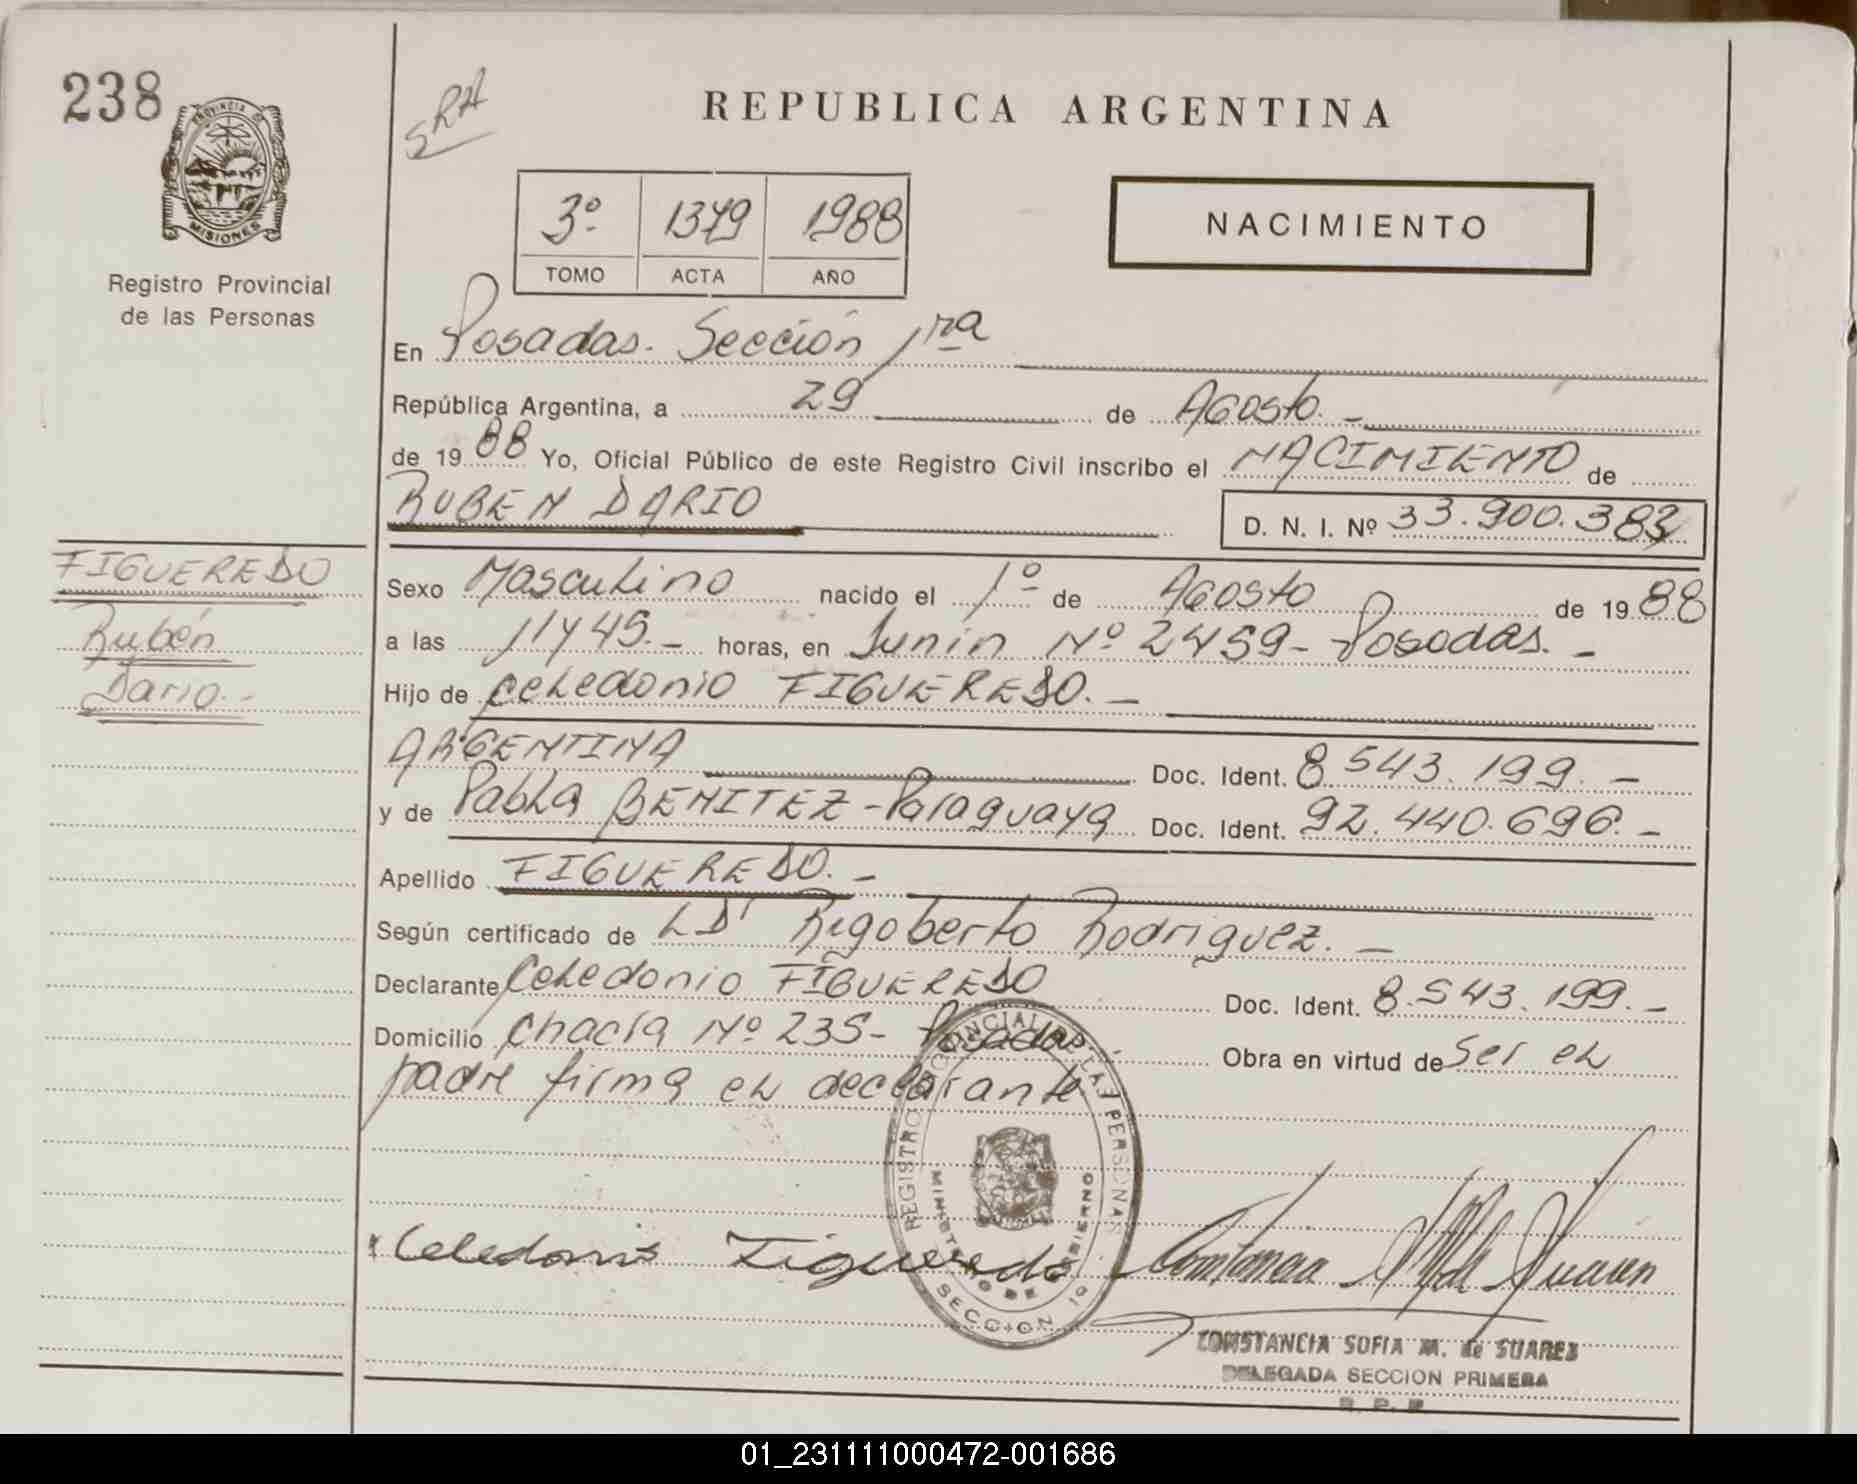 238
SRA
REPUBLICA ARGENTINA
PROVINCIA DE
MISIONES
Registro Provincial
de las Personas
3º 1379 1988
TOMO ACTA AÑO
NACIMIENTO
En Posadas. Sección 1ra
República Argentina, a 29 de Agosto. -
de 19 88 Yo, Oficial Público de este Registro Civil inscribo el NACIMIENTO de
RUBEN DARIO
D. N. I. Nº 33.900.383
FIGUEREDO
Rubén
Dario. -
Sexo Masculino nacido el 1º de Agosto de 19 88
a las 11 y 45. - horas, en Junin Nº 2459 - Posadas. -
Hijo de Celedonio FIGUEREDO. -
ARGENTINA Doc. Ident. 8.543.199. -
y de Pabla BENITEZ - Paraguaya Doc. Ident. 92.440.696. -
Apellido FIGUEREDO. -
Según certificado de LDr Rigoberto Rodriguez. -
Declarante Celedonio FIGUEREDO Doc. Ident. 8.543.199. -
Domicilio Chacra Nº 235 - Posadas. Obra en virtud de Ser el
padre firma el declarante
REGISTRO PROVINCIAL DE LAS PERSONAS
MINISTERIO DE GOBIERNO
SECCION 1a
Celedonio Figueredo
CONSTANCIA SOFIA M. de SUAREZ
DELEGADA SECCION PRIMERA
R. P. P.
01_231111000472-001686